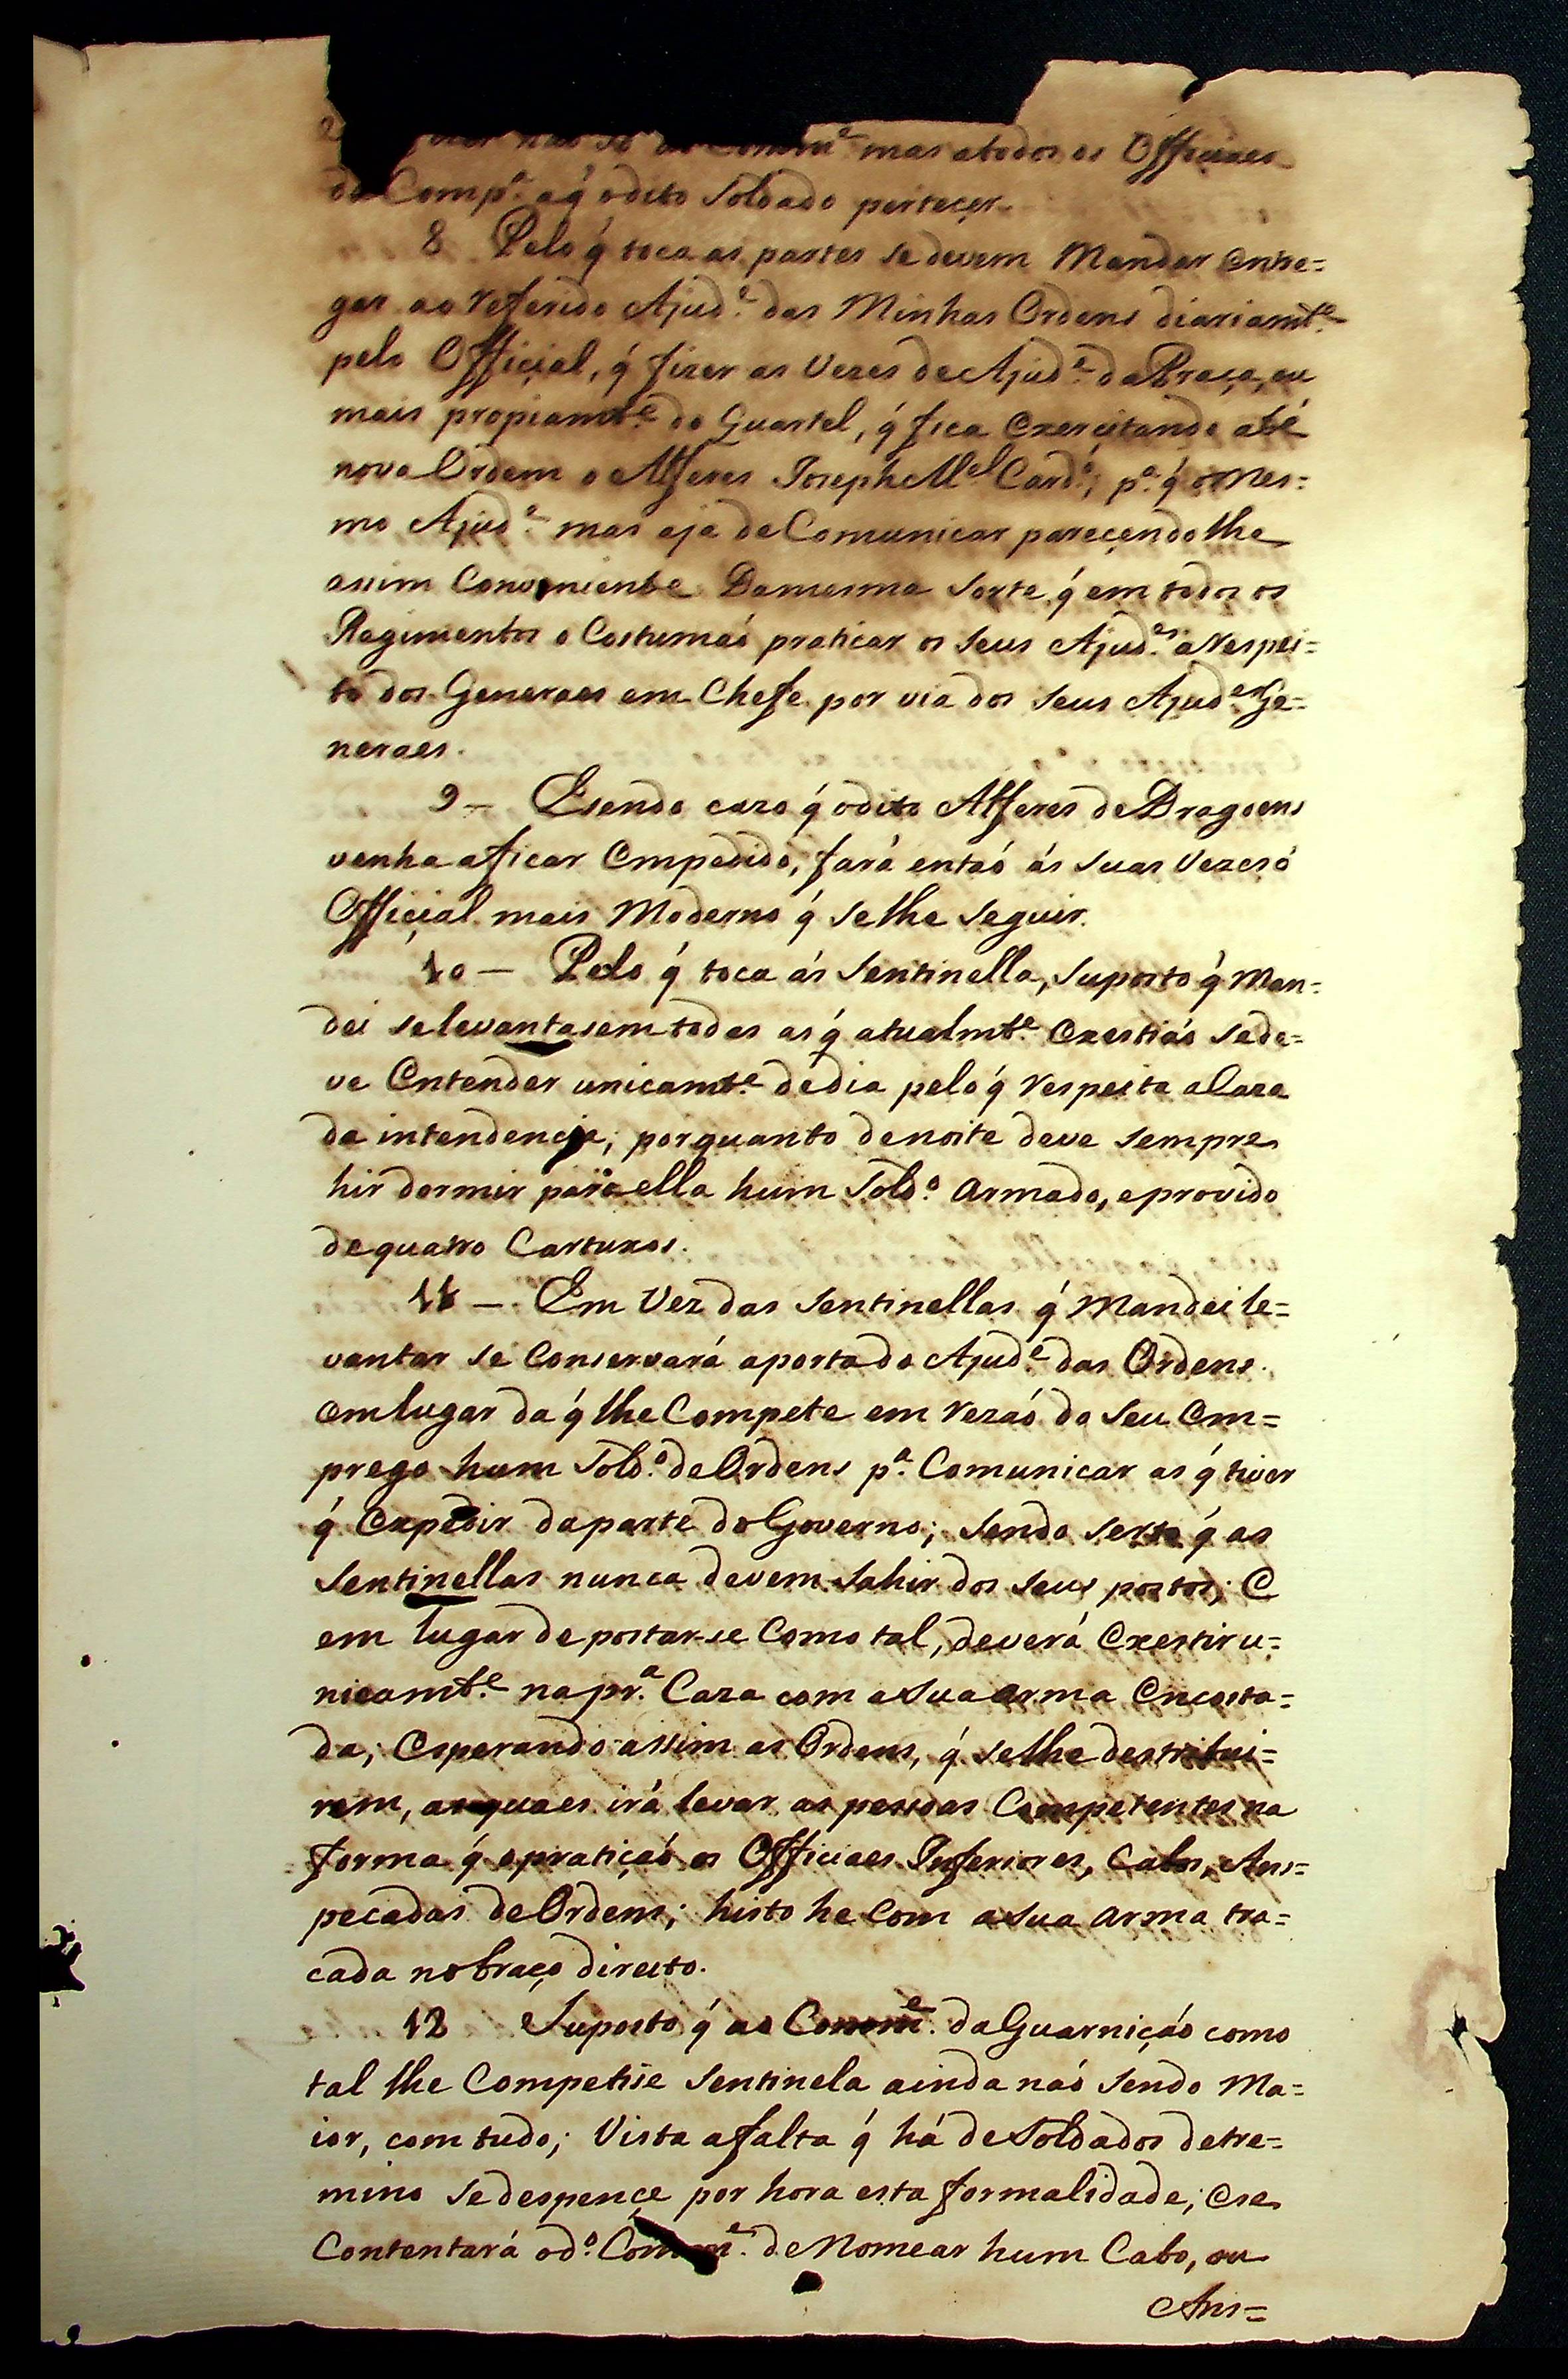 não só ao Comm.e mas a todos os Officiaes
da Comp.a a q́ o dito Soldado perteçer.
8 Pelo q́ toca as partes se devem Mandar Entre=
gar ao referido Ajud.e das Minhas Ordens diariamt.e
pelo Offiçial, q́ fizer as Vezes de Ajud.e da Praça, ou
mais propiamt.e do Quartel, q́ fica Exercitando athé
nova Ordem o Alferes Joseph M.el Card.o; p.a q́ o Mes=
mo Ajud.e mas aja de Comunicar pareçendolhe
assim Conveniente Damesma Sorte q́ em todos os
Regimentos o Costumaó praticar os Seus Ajud.es a respei=
to dos Generaes em Chefe por via dos Seus Ajud.es Ge=
neraes.
9 — Esendo cazo q́ odito Alferes de Dragoens
venha aficar Empedido, fará entaó ás Suas Vezes ó
Offiçial mais Moderno q́ selhe Seguir.
10 — Pelo q́ toca ás Sentinella, Suposto q́ Man=
dei selevantasem todas as q́ atualmt.e Existiáo sede=
ve Entender unicamt.e dedia pelo q́ respeita aCaza
da intendençia; porquanto denoite deve sempre
hir dormir para ella hum Sold.o Armado, eprovido
dequatro Cartuxos.
11 — Em Vez das Sentinellas q́ Mandei le=
vantar se Conservará aporta do Ajud.e das Ordens
emlugar da q́ lhe Compete em rezaó do Seu Em=
prego hum Sold.o deOrdens p.a Comunicar as q́ tiver
q́ Expedir daparte do Governo; sendo serto q́ as
Sentinellas nunca devem Sahir dos Seus postos; E
em lugar de postar-se Como tal, deverá Existir u=
nicamt.e na pr.a Caza com a Sua arma Encosta=
da; Esperando assim as Ordens, q́ selhe destribui=
rem, as quaes irá levar as pessoas Competentes na
forma q́ opratiçaó os Officiaes Inferiores, Cabos, Ans=
pecadas deOrdens; histo he Com a Sua arma tra=
cada nobraço direito.
12 Suposto q́ ao Comm.e daGuarniçáo como
tal lhe Competise Sentinela ainda naó Sendo Ma=
ior, com tudo; Vista afalta q́ há deSoldados detre=
mino Sedespençe por hora esta formalidade; Ese
Contentará od.o Comm.e de Nomear hum Cabo, ou
Ans=